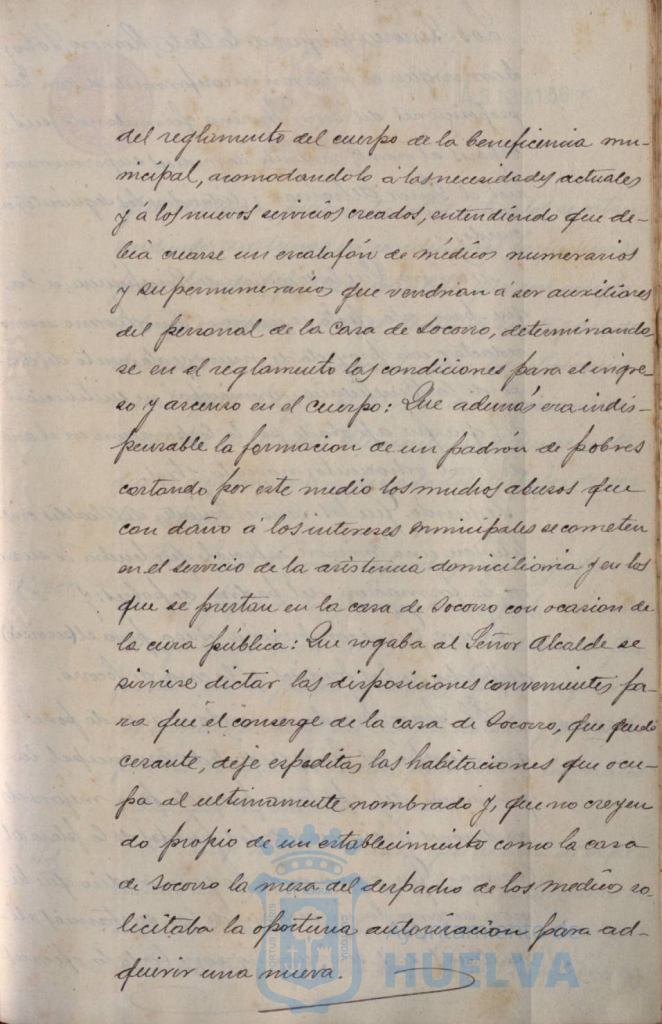 del reglamento del cuerpo de la beneficencia mu-
nicipal, acomodandolo á las necesidades actuales
y á los nuevos servicios creados, entendiendo que de-
bia crearse un escalafón de médicos numerarios
y supernumerarios que vendrian á ser auxiliares
del personal de la Casa de Socorro, determinando
se en el reglamento las condiciones para el ingre-
so y ascenso en el cuerpo: Que además era indis-
pensable la formacion de un padrón de pobres
cortando por este medio los muchos abusos que
con daño á los intereses municipales se cometen
en el servicio de la asistencia domiciliaria y en los
que se prestan en la casa de Socorro con ocasion de
la cura pública: Que rogaba al Señor Alcalde se
sirviese dictar las disposiciones convenientes pa-
ra que el conserge de la casa de Socorro, que quedó
cesante, deje expeditas las habitaciones que ocu-
pa al ultimamente nombrado y, que no creyen
do propio de un establecimiento como la casa
de Socorro la mesa del despacho de los medicos so-
licitaba la oportuna autorizacion para ad-
quirir una nueva.
HUELVA